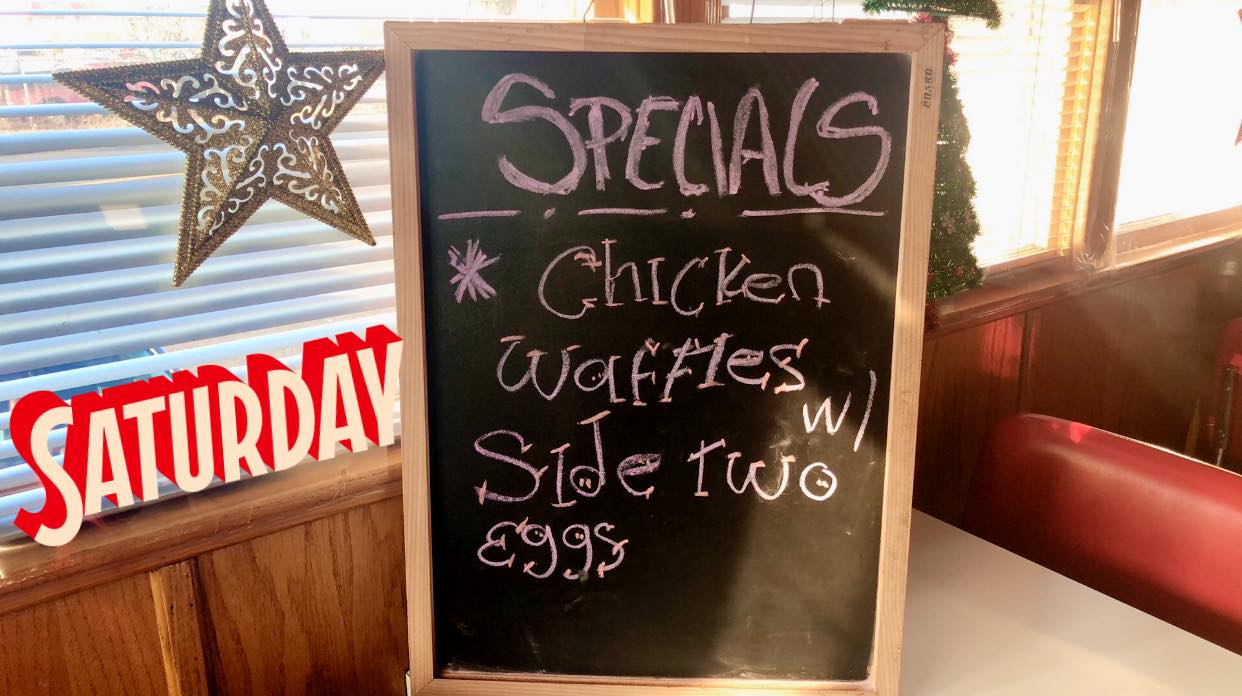 SPECIALS
* Chicken
waffles
w/
Side two
eggs
SATURDAY